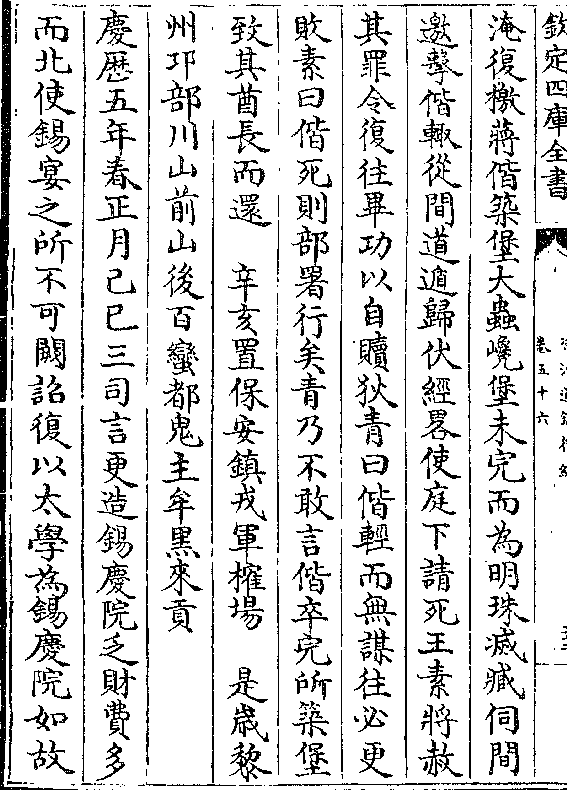 欽定四庫全書
卷五十六
淹復檄蔣偕築堡大蟲嶢堡未完而為明珠滅臧伺間
邀擊偕輙從間道遁歸伏經畧使庭下請死王素將赦
其罪令復往畢功以自贖狄青曰偕輕而無謀往必更
敗素曰偕死則部署行矣青乃不敢言偕卒完所築堡
致其酋長而還　辛亥置保安鎮戎軍榷場　是嵗黎
州卭部川山前山後百蠻都鬼主牟黑來貢
慶歴五年春正月己巳三司言更造錫慶院乏財費多
而北使錫宴之所不可闕詔復以太學為錫慶院如故